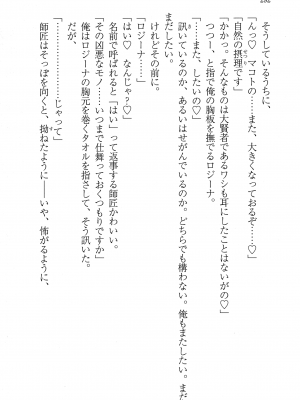 そうしているうちに、
「んっ♡　マコトの……また、大きくなっておるぞ……♡」
「自然の摂理です」
「かかっ。そんなものは大賢者であるワシも耳にしたことはないがの♡」
つつー、と指で俺の胸板を撫でるロジーナ。
「……また、したいの♡」
訊いているのか、あるいはせがんでいるのか。どちらでも構わない。俺もまたしたい。まだ
まだしたい。
けれどその前に。
「ロジーナ」
「はい♡　なんじゃ?♡」
名前で呼ばれると「はい」って返事する師匠かわいい。
「その凶悪なモノ……いつまで仕舞っておくつもりですか」
俺はロジーナの胸元を巻くタオルを指さして、そう訊いた。
だが、
「…………じゃって」
師匠はそっぽを向くと、拗ねたように――いや、怖がるように、